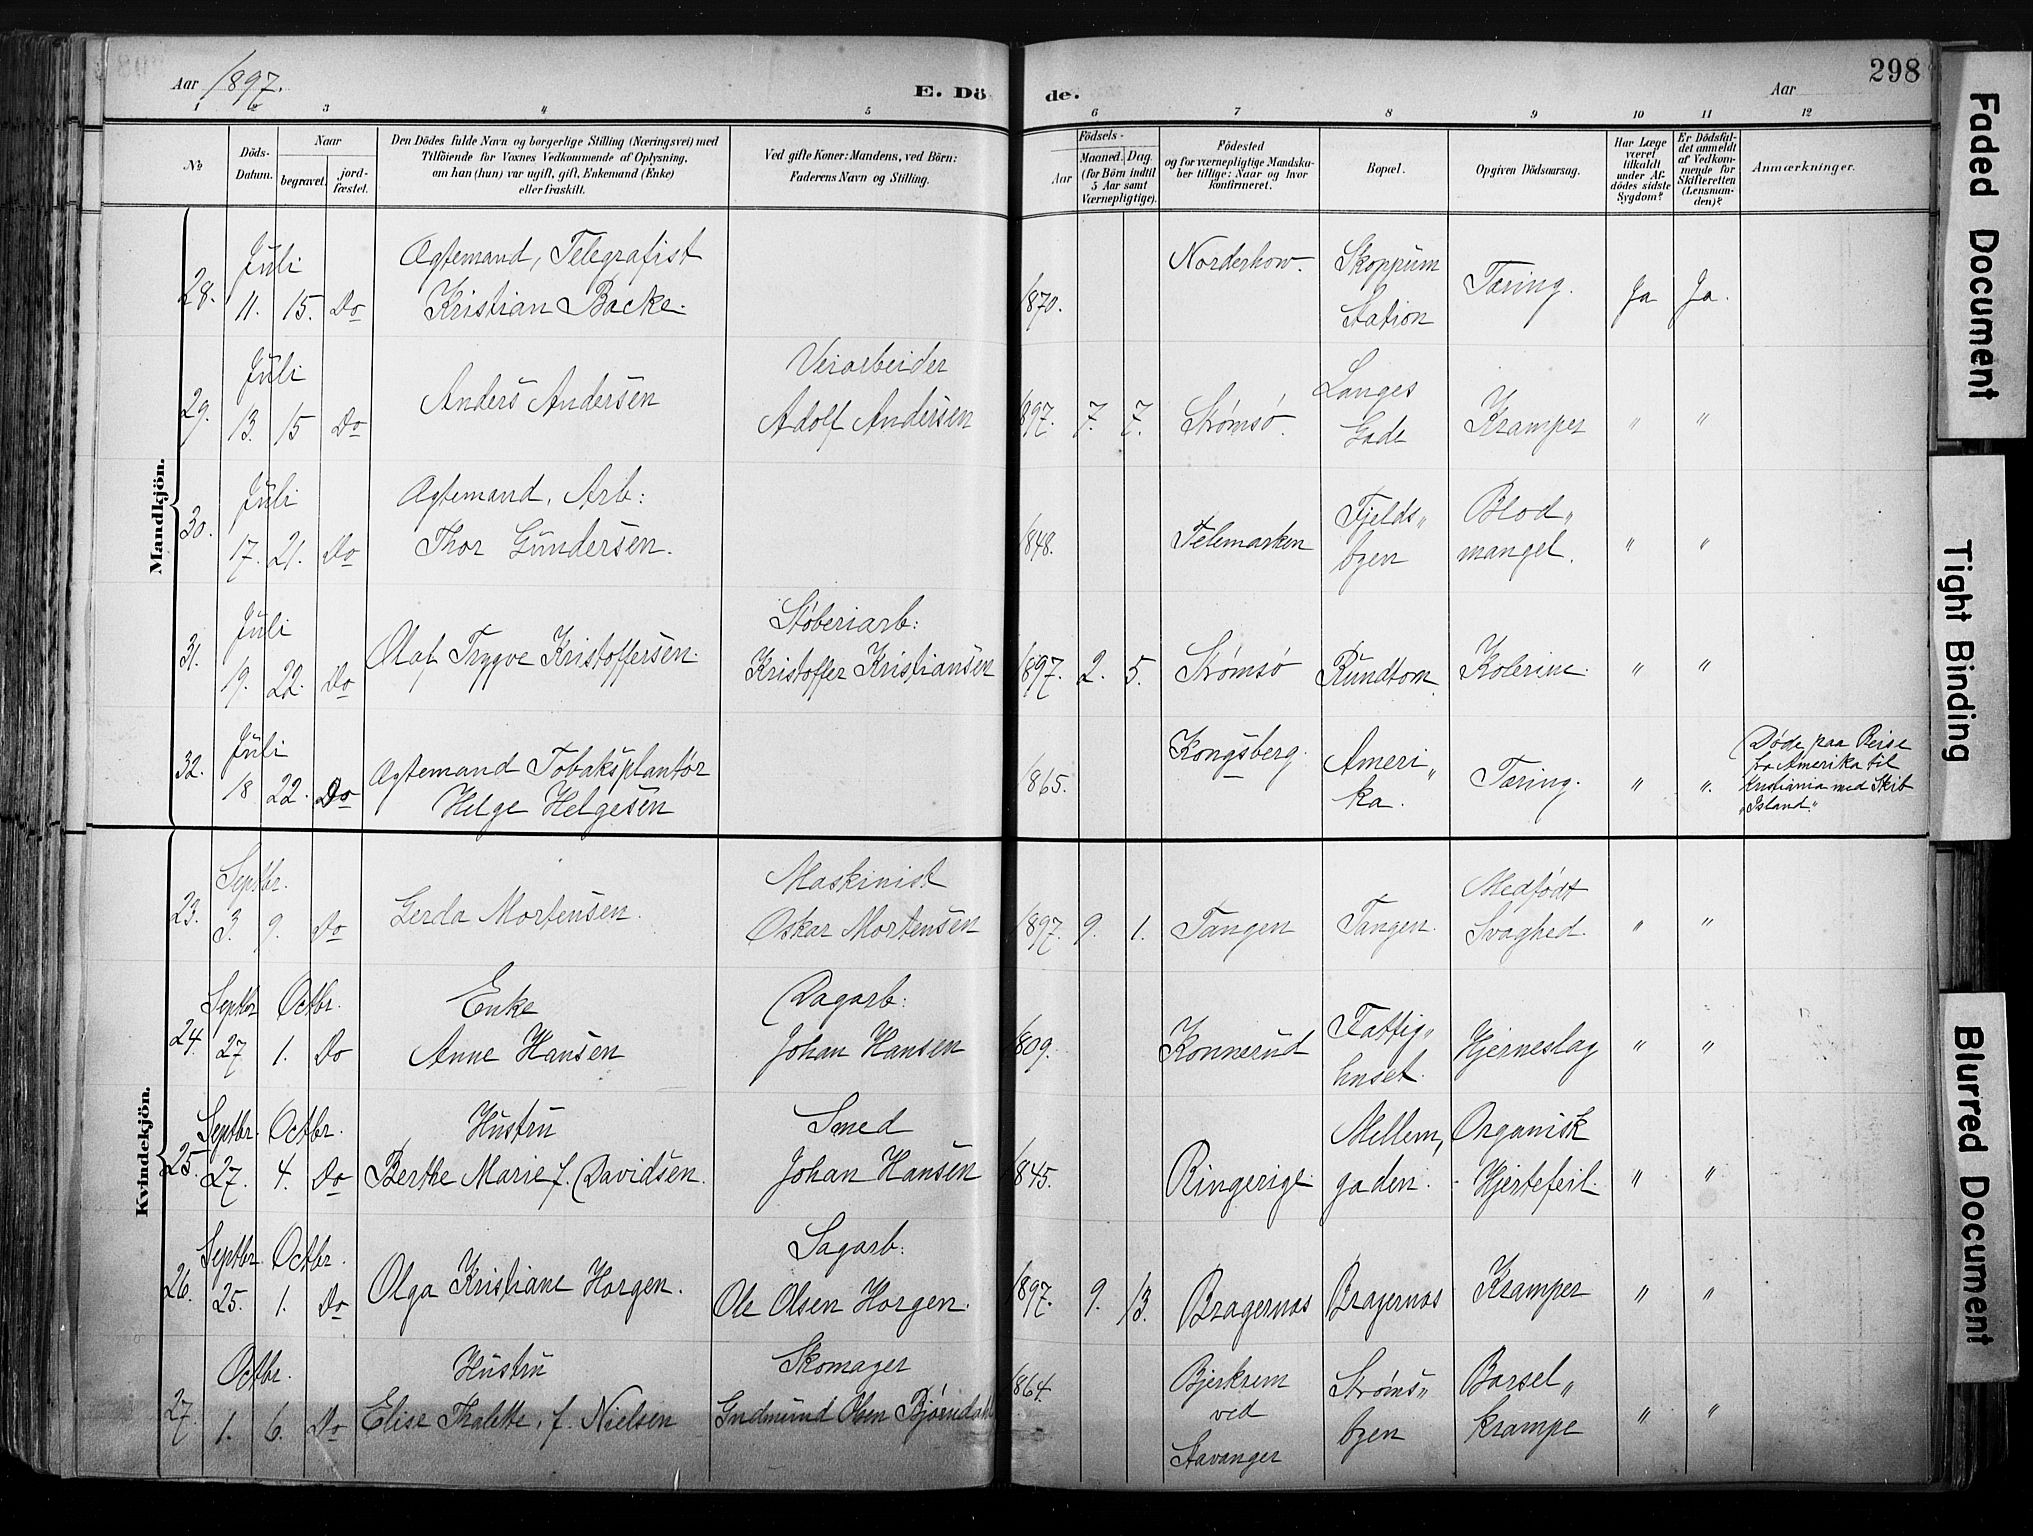 Aar 1897.
E. Dö
de.
Aar
298
1 2 3 4 5 6 7 8 9 10 11 12
No
Döds-
Datum.
Naar
begravet.
jord-
fæstet.
Den Dödes fulde Navn og borgerlige Stilling (Næringsvei) med
Tilföiende for Voxnes Vedkommende af Oplysning,
om han (hun) var ugift, gift, Enkemand (Enke)
eller fraskilt.
Ved gifte Koner: Mandens, ved Börn:
Faderens Navn og Stilling.
Födsels-
Aar
Maaned. Dag.
(for Börn indtil
5 Aar samt
Værnepligtige).
Födested
og for værnepligtige Mandska-
ber tillige: Naar og hvor
konfirmeret.
Bopæl.
Opgiven Dödsaarsag.
Har Læge
været
tilkaldt
under Af-
dödes sidste
Sygdom?
Er Dödsfal-
det anmeldt
af Vedkom-
mende for
Skifteretten
(Lensman-
den)?
Anmærkninger.
Mandkjön.
28.
Juli
11. 15. Do
Ægtemand, Telegrafist
Kristian Backe.
1870.
Norderhow.
Skoppum
Station
Tæring.
Ja Ja.
29.
Juli
13. 15 Do
Anders Andersen
Veiarbeider
Adolf Andersen
1897. 7. 7.
Strømsø.
Langes
Gade
Kramper
" "
30.
Juli
17. 21. Do
Ægtemand, Arb:
Thor Gundersen.
1848.
Telemarken
Fjelds„
byen
Blod„
mangel.
" "
31.
Juli
19. 22. Do
Olaf Trygve Kristoffersen.
Støberiarb:
Kristoffer Kristiansen
1897. 2. 5.
Strømsø
Rundtom
Kolerine.
" "
32.
Juli
18 22. Do
Ægtemand Tobaksplantør
Helge Helgesen
1865.
Kongsberg.
Ameri„
ka.
Tæring.
" "
Døde paa Reise
fra Amerika til
Kristiania med Skib
„Island"
Kvindekjön.
23.
Septbr.
3. 9. Do
Gerda Mortensen.
Maskinist
Oskar Mortensen
1897. 9. 1.
Tangen
Tangen.
Medfødt
Svaghed.
" "
24.
Septbr Octbr.
27 1. Do
Enke
Anne Hansen
Dagarb:
Johan Hansen
1809.
Konnerud
Fattig„
huset.
Hjerneslag
" "
25.
Septbr. Octbr.
27. 4. Do
Hustru
Berthe Marie f. Davidsen.
Smed
Johan Hansen
1845.
Ringerige
Mellem„
gaden.
Organisk
Hjertefeil.
" "
26.
Septbr. Octbr.
25. 1. Do
Olga Kristiane Horgen.
Sagarb:
Ole Olsen Horgen.
1897. 9. 13.
Bragernæs
Bragernæs
Kramper
" "
27.
Octbr.
1. 6. Do
Hustru
Elise Thalette, f. Nielsen
Skomager
Gudmund Olsen Bjørndahl
1864.
Bjerkrem
ved
Stavanger
Strøms„
byen
Barsel„
krampe
" "
Faded Document
Tight Binding
Blurred Document